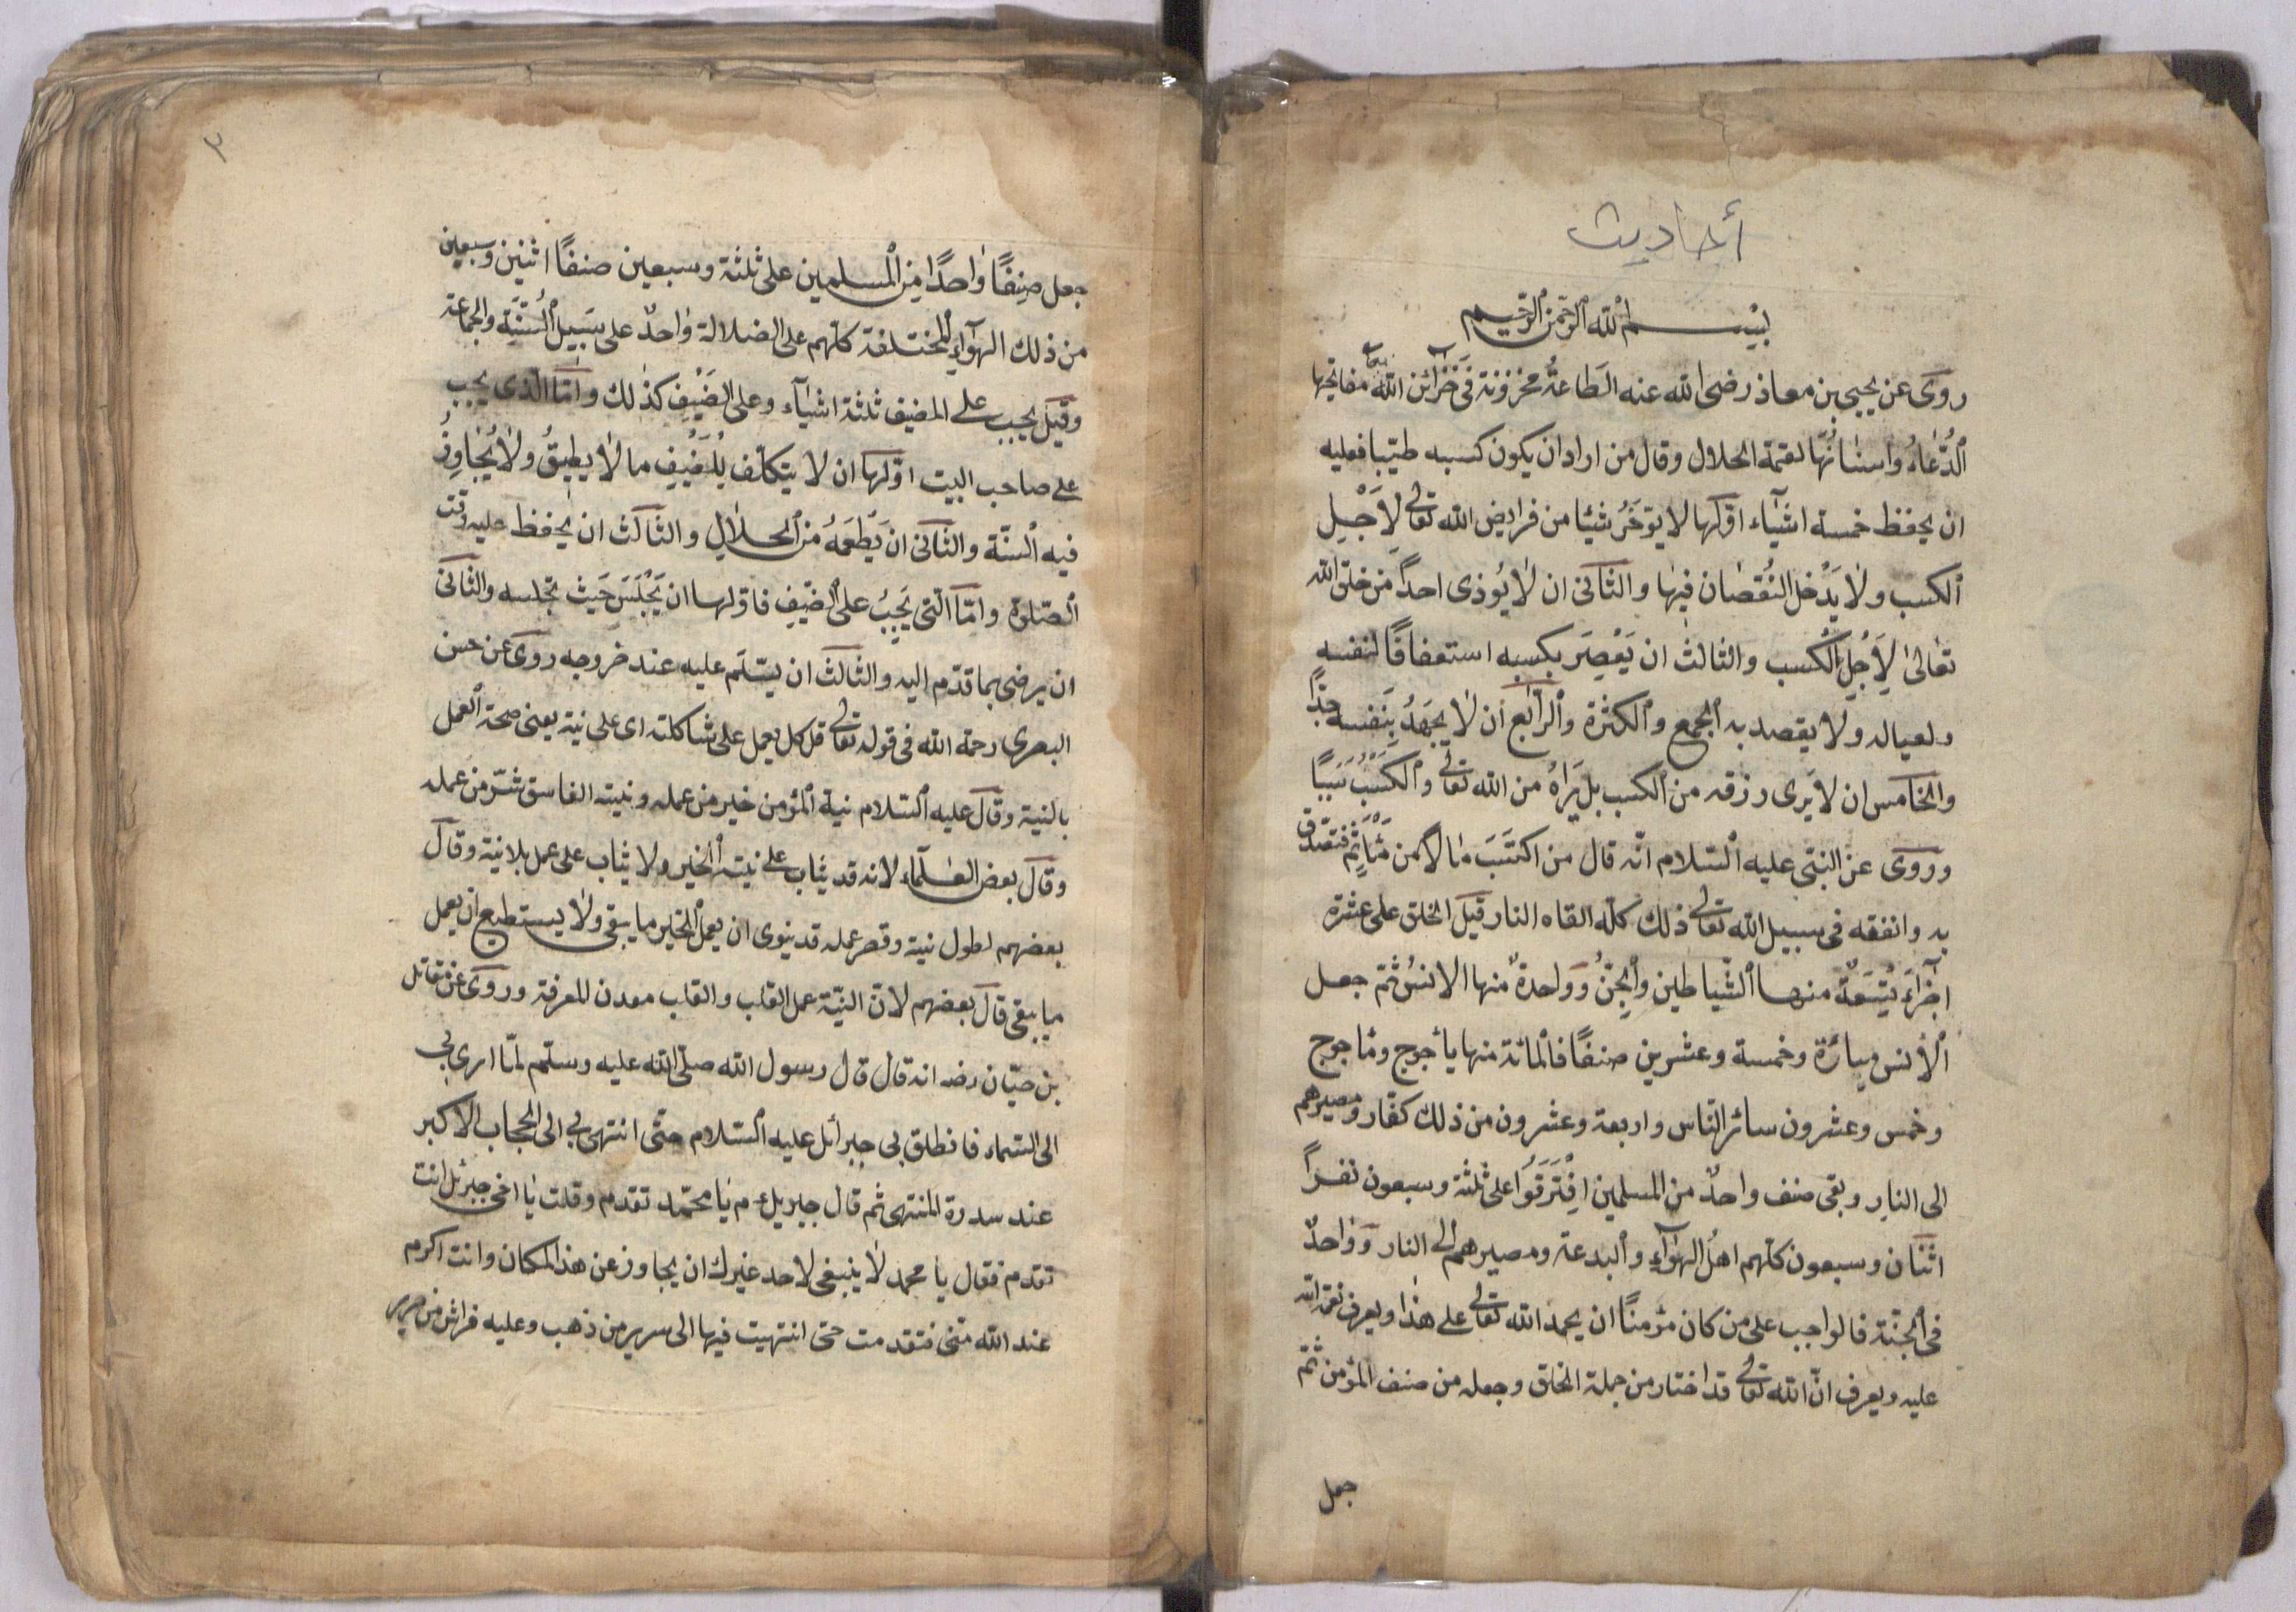 أحاديث
بسم الله الرحمن الرحيم
روى عن يحيى بن معاذ رضى الله عنه الطَاعةُ مخزونة فى خَزَآئن الله تعالى مفاتحها
الدُّعَاءُ واسنانُهَا لقمة الحلال وقال من اراد ان يكون كسبه طيّبا فعليه
ان يحفظ خمسة اشيَآء اوّلها لا يؤخَّرُ شيئا من فرايض الله تعالى لِاَجْلِ
الكسب ولا يَدْخل النُقصَان فيهَا والثانى ان لا يُوذى احداً من خلق الله
تعَالى لِاَجْلِ الْكَسب والثالث ان يَعْصِرَ بكسبه استعفافًا لنفسه
ولعياله ولا يقصد به الجمع والكثرة والرّابع أن لا يجهَدُ بِنَفسه جدًّا
والخامس ان لا يَرى رزقه من الكسب بل يَرَاهُ من الله تعالى والكَسْبُ سَبَبًا
وروى عن النبّى عليه السّلام انّه قال من اكتَسَبَ مَالاً من مَأثَمٍ فتصدّق
به وانفقه فى سبيل الله تعالى ذلك كلّه القاه النار قيل الخلق على عشرة
اجزَآءٍ تِسْعَةٌ منها الشّياطين والجِنُّ وواحدةٌ منها الانسُ ثمّ جعل
الأنس مِائَة وخمسة وعشرين صنفًا فالمائة منها يأجوج ومأجوج
وخمس وعشرون سائر النّاس واربعة وعشرون من ذلك كفّار ومصيرهم
الى النار وبقى صنف واحدٌ من المسلمين اِفْتَرَقَوا على ثلثة وسبعون نفراً
اثنَان وسبعون كلّهم اهلُ الهوَآءِ والبدعة ومصيرهم الى النار وَوَاحدٌ
فى الجنّة فالواجب على من كان مؤمنًا ان يحمد الله تعالى على هذا ويعرف نعمة الله
عليه ويعرف انّ الله تعالى قد اختار من جملة الخلق وجعله من صنف المؤمن ثمّ
جعل
٢
جعل صِنفًا وَاحدًا مِنَ الْمسلمين على ثلثة وسبعين صنفًا اثنين وسبعين
من ذلك الهوَآءِ المختلفة كلّهم على الضلالة وَاحدٌ على سَبيل السُّنّةِ والجماعة
وقيل يجب على المضيف ثلثة اشيَآء وعلى الضَيْفِ كذلك وامّا الّذى يجب
على صاحب البيت اوّلها ان لا يتكلّف لِلْضَيْفِ ما لا يطيقُ ولا يُجَاوزُ
فيه السنّة والثانى ان يُطْعمهُ من الحلالِ والثالث ان يحفظ عليه وقت
الصّلوة وامّا التى يَجِبُ على الضيفِ فاوّلها ان يَجْلسَ حَيثَ تجلسه والثانى
ان يرضى بما قدّم اليه والثالث ان يسّلم عليه عند خروجه روى عن حسن
البصرى رحمة الله فى قوله تعالى قل كل يعمل على شاكلته اى على نيّة يعنى صحة العمل
بالنية وقال عليه السّلام نية المؤمن خير من عمله ونيته الفاسق شرّ من عمله
وقال بعض العلمآء لانه قد يثاب على نيته الخير ولا يثاب على عمل بلا نية وقال
بعضهم لطول نية وقصر عمله قد ينوى ان يعمل الخير ما يبقى ولا يستطيع ان يعمل
ما يبقى قال بعضهم لانّ النيّة عمل القلب والقلب معدن المعرفة وروى عن مقاتل
بن حيّان رضه انه قال قال رسول الله صلّى الله عليه وسلّم لمّا اسرى بى
الى السّماء فانطلق بى جبرائل عليه السّلام حتّى انتهى بى الى الحجاب الاكبر
عند سدرة المنتهى ثم قال جبريل ءم يَا محمّد تقدم وقلت يَا اخى جبرئل انت
تقدم فقال يا محمد لا ينبغى لاحد غيرك ان يجاوز عن هذ المكان وانت اكرم
عند الله منّى فتقدمت حتى انتهيت فيها الى سرير من ذهب وعليه فراش من حرير